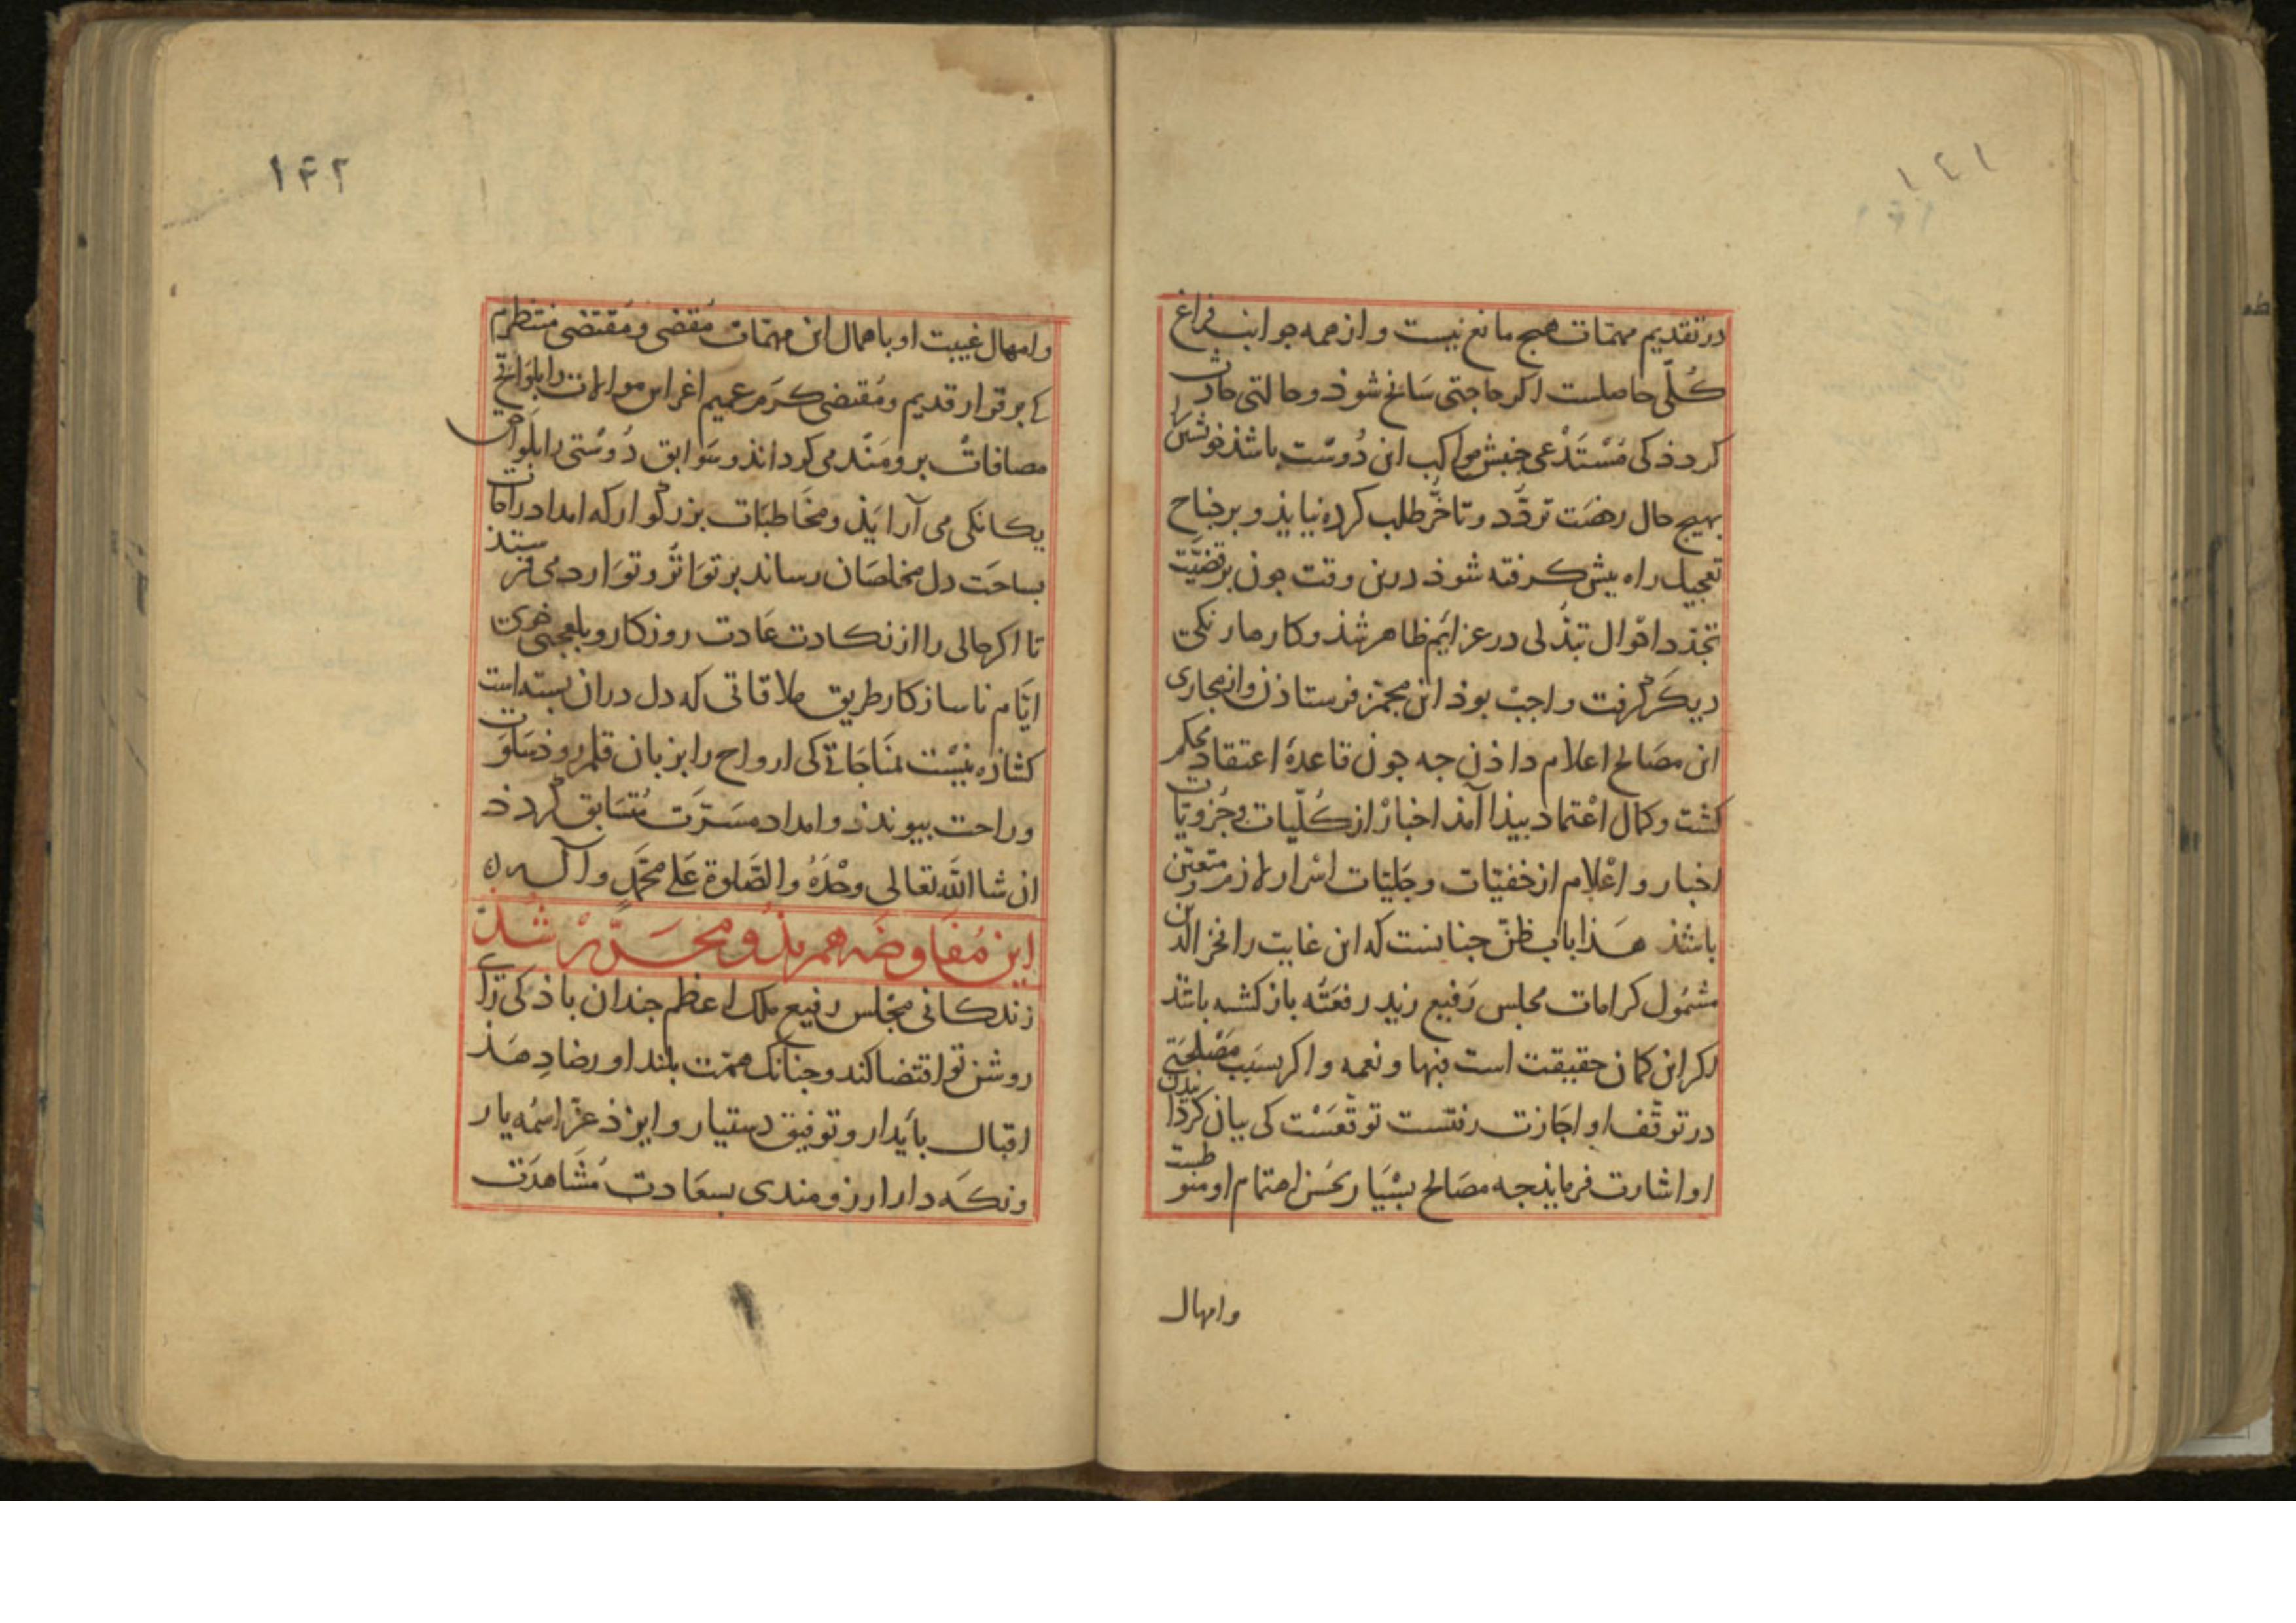 ۱٤۱
در تقدیم مهمّات هیج مانع نیست و از همه جوانب فراغ
کُلّی حاصلست اکر حاجتی سَانح شوذ و حالتی حادث
کردذ کی مُسْتَدْعی جنبش مواکب این دُوسْت باشذ خویشتن را
بهیج حال رخصَت تردّد و تاخّر طلب کرده نیایذ و بر جناح
تعجیل راه بیش کرفته شوذ درین وقت جون بر قضیّت
تجدّد احْوال تبدّلی در عزائم ظاهر شذ و کارها رنکی
دیکَر کرفت واجبْ بوذ این مجمّز فرستاذن و از مجاری
این مصَالح اعلام داذن جه جون قاعدهٔ اعتقاد محکم
کشت و کمال اعْتماد بیذا آمذ اخبارْ از کُلّیات و جُزویّات
اخبار و اعْلام از خفیّات و جَلیّات اسْرار لازم و متعیّن
باشذ هَذا باب ظنّ جنانست که این غایت را فخر الدین
مشمُول کرامات مجلس رَفیع زید رفعَتُه باز کشته باشذ
اکر این کمان حقیقت است فبها و نعمه و اکر بسَبب مَصْلحَتی
در توقّف او اجَازت رفتست توقّعَسْت کی بیان کردن
او اشارت فرمایذ جه مصَالح بسْیَار بحُسْن اهتمام او منوطست
وامهال
۱۴۲
وامهال غیبت او باهمال این مهمّات مُفضی و مُقتضی منتظرم
کی بر قرار قدیم و مُقتضی کرَم عمیم اغراس موالات را بلوَاقح
مصافاتْ برومَنْد می کرداند و سَوابق دُوسْتی را بلوَاحق
یکانکی می آرایَذ و مخَاطبَات بزرکوار که امداد راحات
بساحَت دل مخلصَان رساند بر توَاتُر و توَارد می فرستذ
تا اکر حالی را از نکادت عَادت روزکار و بلعجبی
ایّام ناسازکار طریق ملاقاتی که دل دران بسته است
کشاذه نیْست مُنَاجَاتی کی ارواح را بزبان قلم روذ سَلوَت
و راحت بیوندذ و امداد مسَرّت مُتسَابق کردذ
ان شا الله تعالی وحْدَهُ والصّلوة عَلی محمّدٍ وآله
این مُفَاوضَه هم بذو محَرَّرْ شُذ
زندکانی مجْلس رفیع ملک اعظم جندان باذ کی رای
روشن تو اقتضا کند و جنانک همّت بلند او رضا دِهَذ
اقبال بایَدار و توفیق دستیار و ایزذ عزّ اسْمُه یار
و نکَه دار ارزومندی بسعَادت مُشَاهدَت